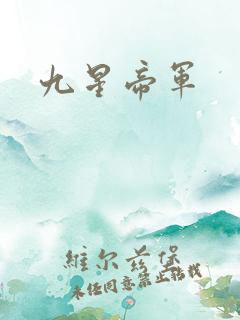 九星帝軍
維尔茲堡
未经同意禁止转载